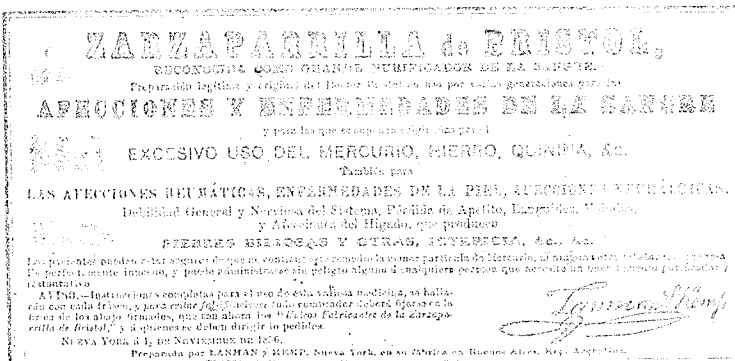 ZARZAPARRILLA de BRISTOL,
RECONOCIDA COMO GRANDE PURIFICADOR DE LA SANGRE.
Preparación legítima y original del Doctor Bristol en uso por varias generaciones para las
AFECCIONES Y ENFERMEDADES DE LA SANGRE
y para las que se
EXCESIVO USO DEL MERCURIO, HIERRO, QUININA, &c.
También para
LAS AFECCIONES REUMÁTICAS, ENFERMEDADES DE LA PIEL, AFECCIONES NEURÁLGICAS,
Debilidad General y Nerviosa del Sistema, Pérdida de Apetito, Languidez,
y Afecciones del Hígado, que producen
FIEBRES BILIOSAS Y OTRAS, ICTERICIA, &c., &c.
Los pacientes pueden estar seguros de que no contiene este remedio la menor partícula de Mercurio, ni
Es perfectamente inocuo, y puede administrarse sin peligro alguno á cualquiera persona que necesite un buen tónico purificador y
restaurativo
AVISO.—Instrucciones completas para el uso de esta valiosa medicina, se halla-
rán con cada frasco, y para evitar todo comprador deberá fijarse en la
firma de los abajo firmados, que son ahora los "Unicos Fabricantes de la Zarzapa-
rrilla de Bristol," y á quienes se deben dirigir los pedidos.
Lanman & Kemp
NUEVA YORK á 1, DE NOVIEMBRE DE
Preparada por LANMAN y KEMP, Nueva York, en su fábrica en Buenos Aires, Rep. Argentina.